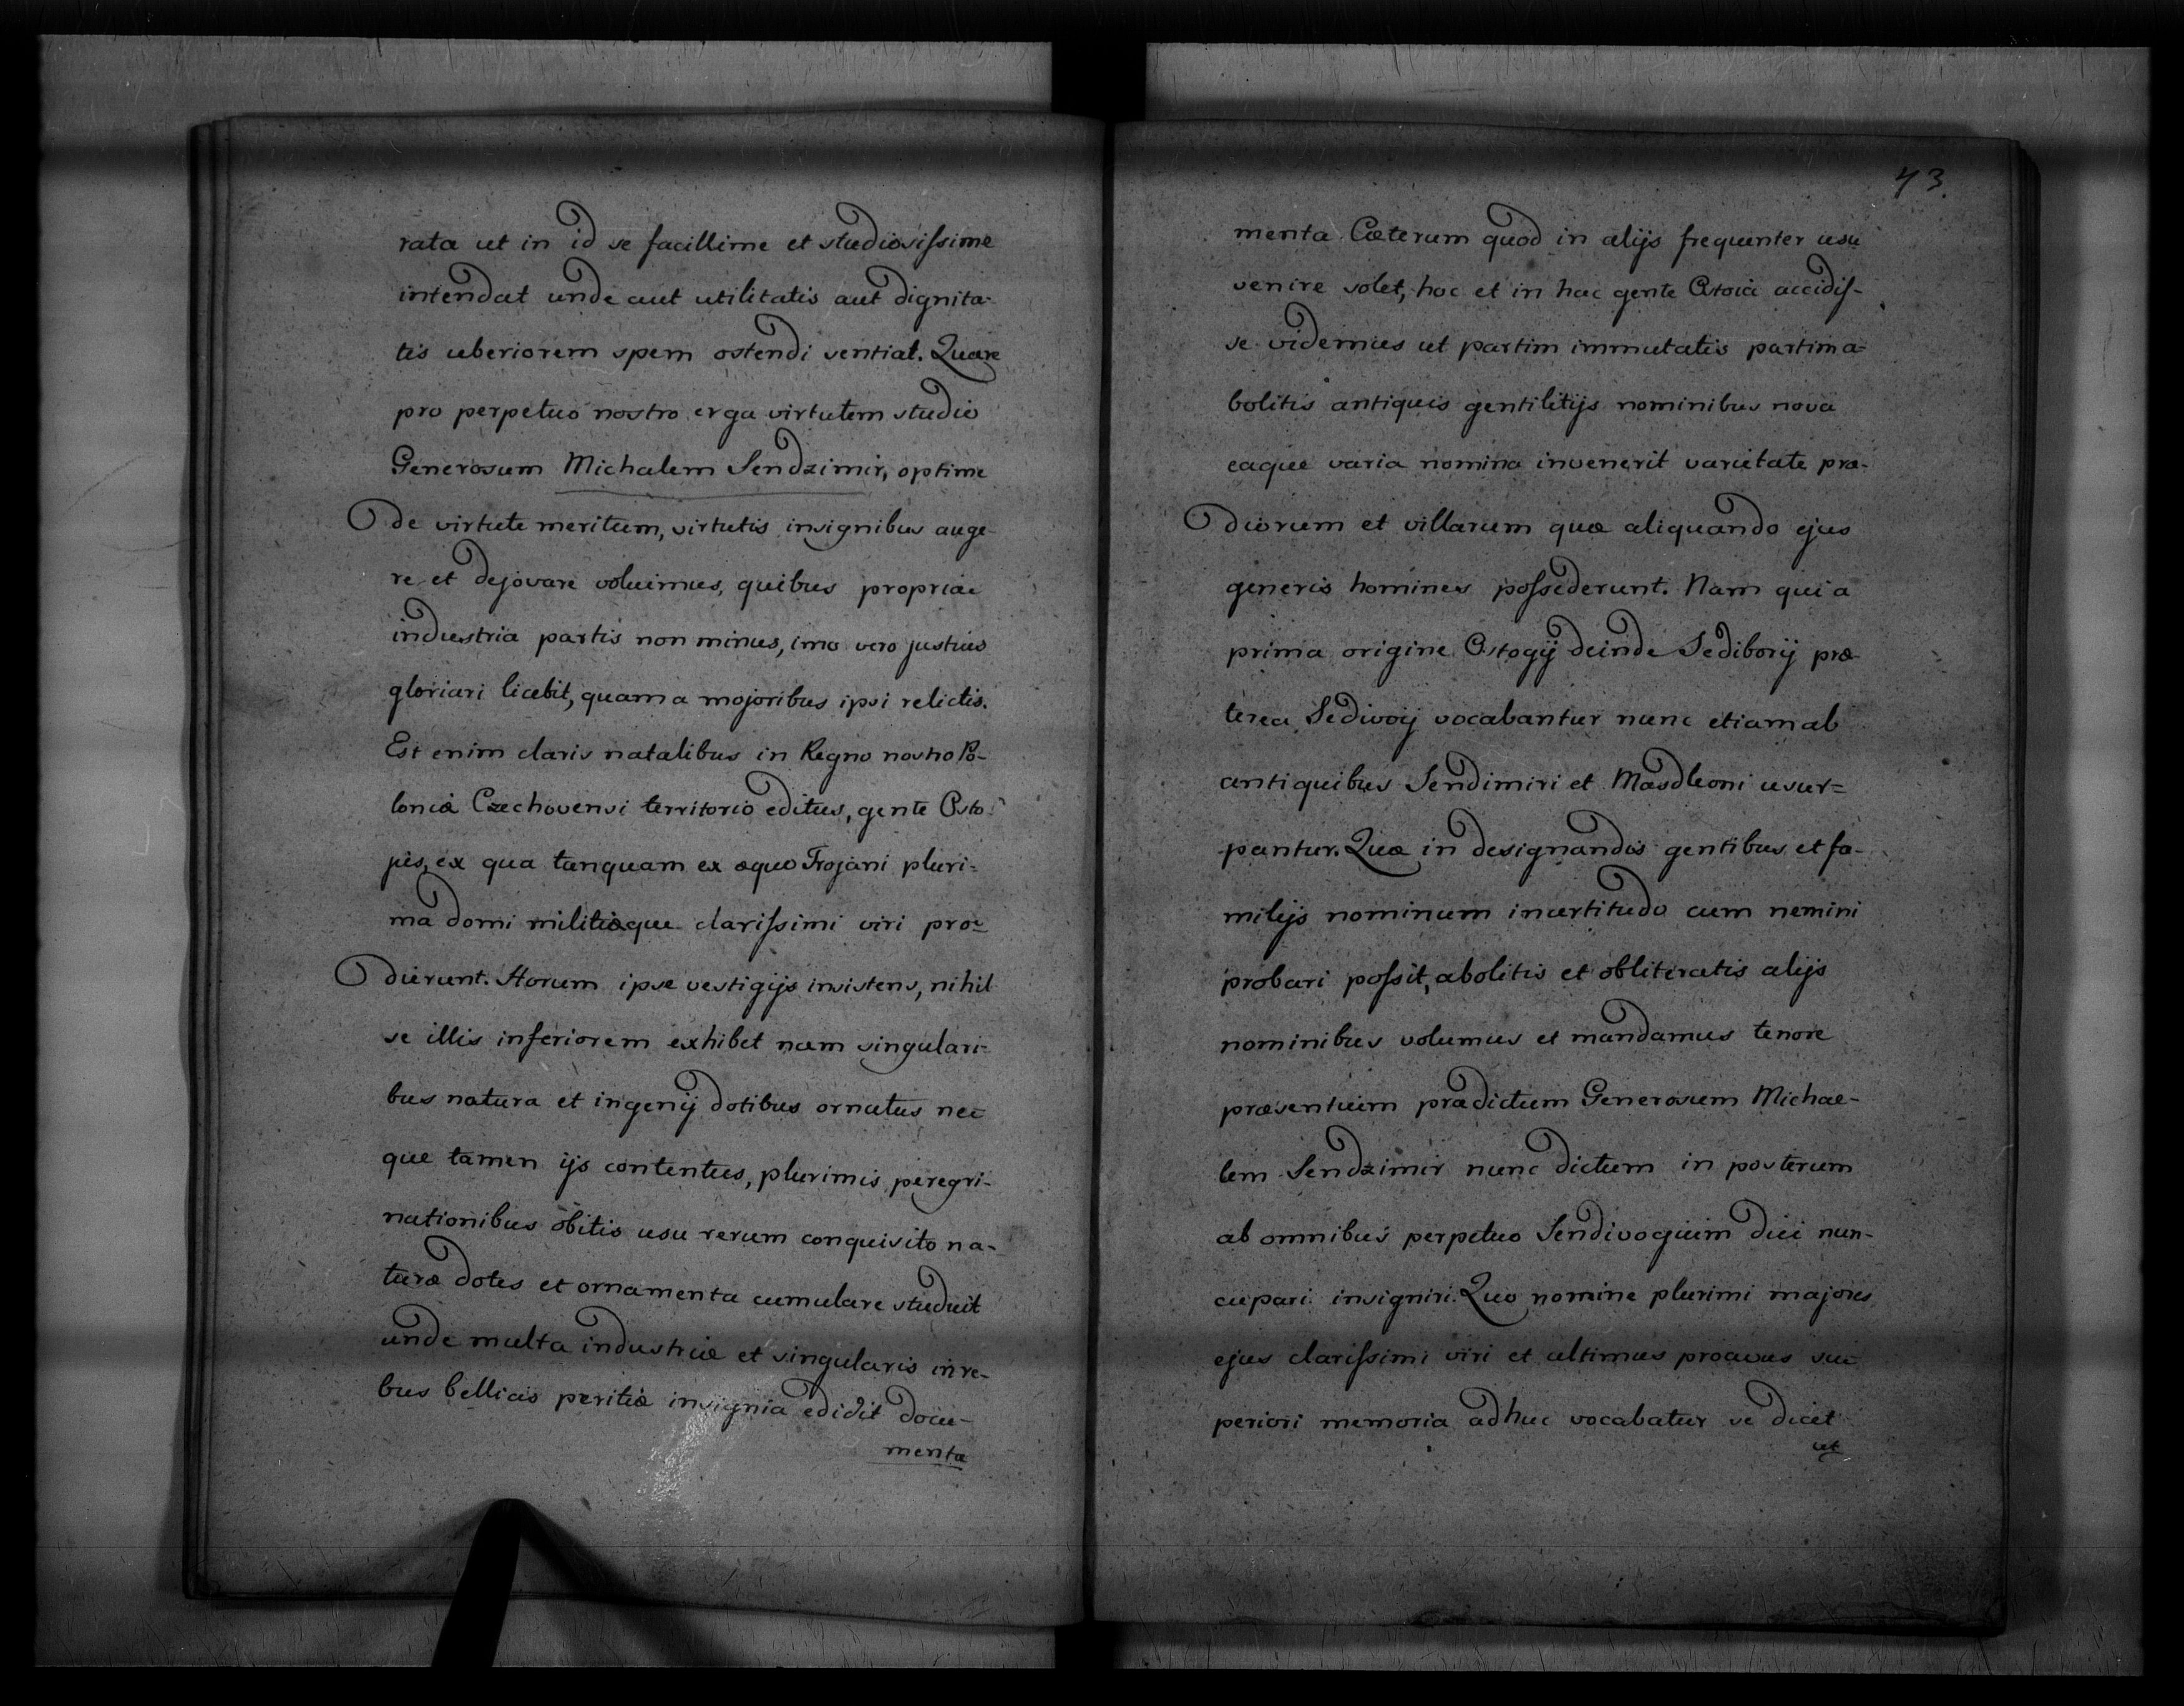 rata ut in id se facillime et studiosissime
intendat unde aut utilitatis aut dignita-
tis uberiorem spem ostendi sentiat. Quare
pro perpetuo nostro erga virtutem studio
Generosum Michalem Sendzimir, optime
de virtute meritum, virtutis insignibus auge-
re et dejovare voluimus, quibus propriae
industria partis non minus, imo vero justius
gloriari licebit, quam a mojoribus ipsi relictis.
Est enim claris natalibus in Regno nostro Po-
loniæ Czechovensi territorio editus, gente Osto-
jis, ex qua tanquam ex æquo Trojani pluri-
ma domi militiæque clarissimi viri pro-
dierunt. Horum ipse vestigijs insistens, nihil
se illis inferiorem exhibet nam singulari-
bus natura et ingenij dotibus ornatus nec
que tamen ijs contentus, plurimis peregri-
nationibus obitis usu rerum conquisito na-
turæ dotes et ornamenta cumulare studuit
unde multa industriæ et singularis in re-
bus bellicis peritiæ insignia edidit docu-
menta
73.
menta Cæterum quod in alijs frequenter usu
venire solet, hoc et in hac gente Ostoia accidis-
se videmus ut partim immutatis partim a-
bolitis antiquis gentilitijs nominibus nova
eaque varia nomina invenerit varietate præ-
diorum et villarum quæ aliquando ejus
generis homines possederunt. Nam qui a
prima origine Ostogij deinde Sediborij præ
terea Sedivoij vocabantur nunc etiam ab
antiquibus Sendimiri et Masdleoni usur=
pantur. Quæ in designandis gentibus et fa-
milijs nominum incertitudo cum nemini
probari possit, abolitis et obliteratis alijs
nominibus volumus et mandamus tenore
præsentium prædictum Generosum Michae-
lem Sendzimir nunc dictum in posterum
ab omnibus perpetuo Sendivogium dici nun-
cupari insigniri. Quo nomine plurimi majores
ejus clarissimi viri et ultimus proavus su
periori memoria adhuc vocabatur se dicet
ut